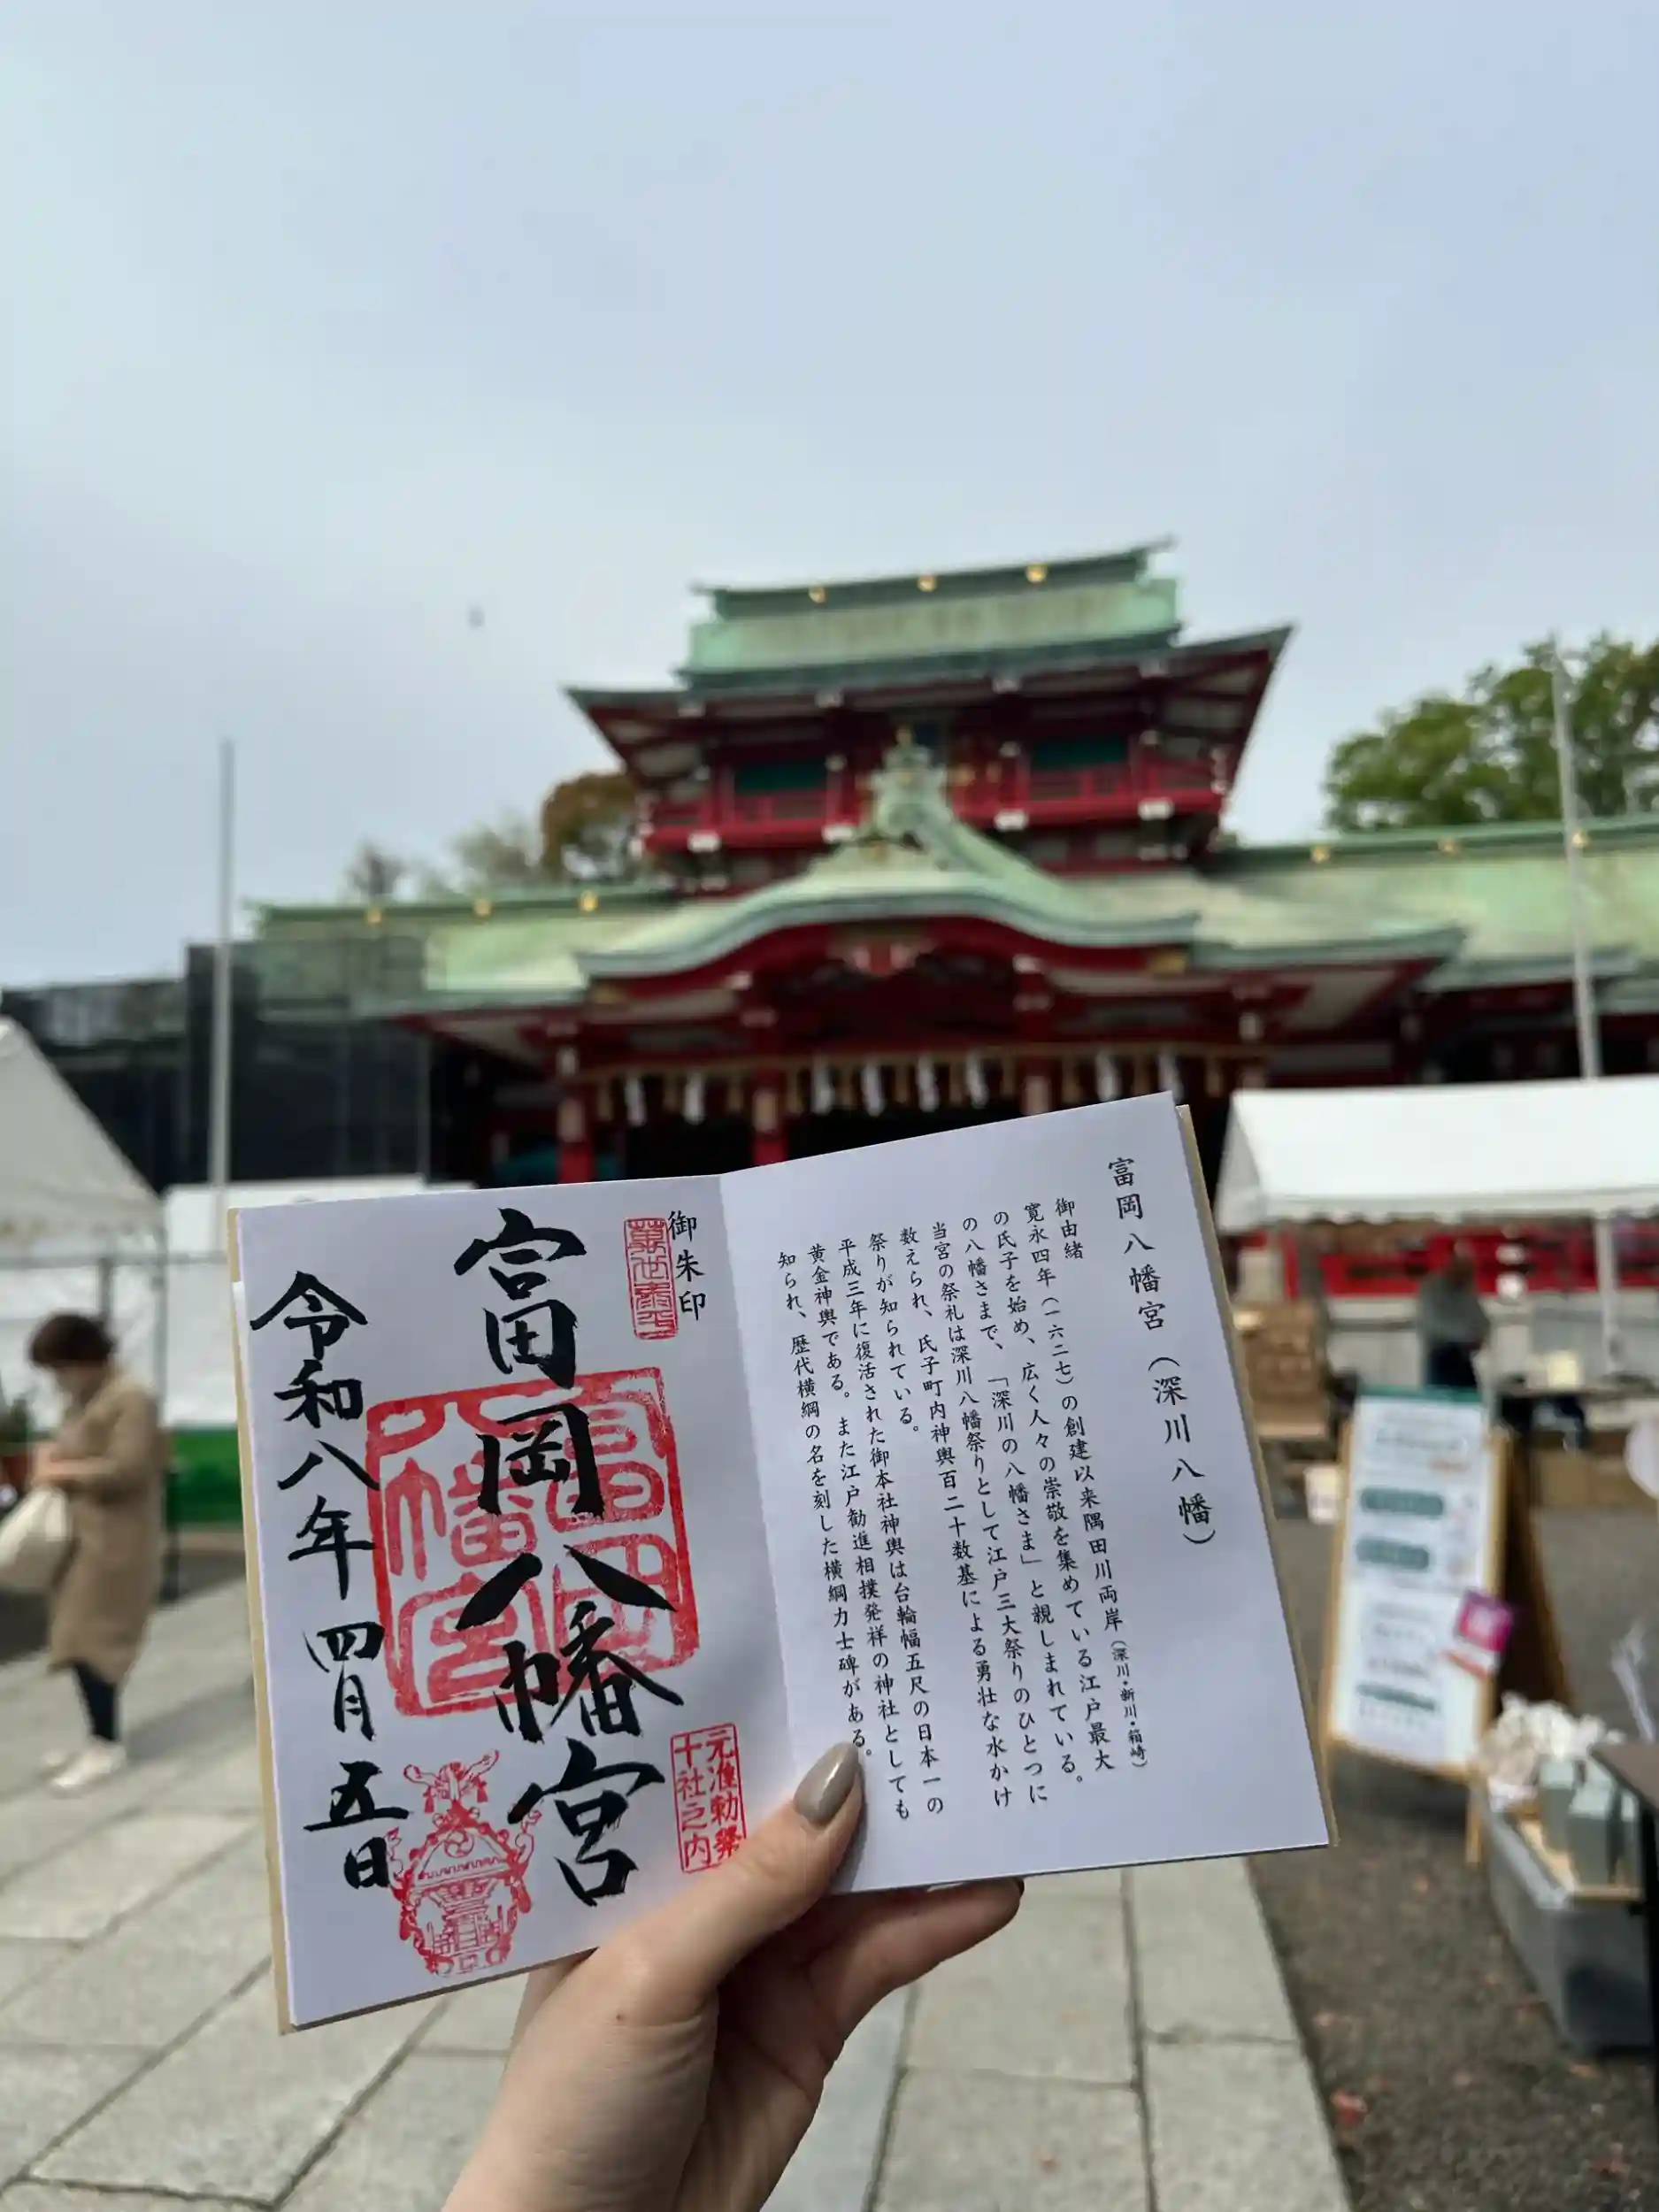 富岡八幡宮(深川八幡)
御由緒
寛永四年(一六二七)の創建以来隅田川両岸(深川・新川・箱崎)
の氏子を始め、広く人々の崇敬を集めている江戸最大
の八幡さまで、「深川の八幡さま」と親しまれている。
当宮の祭礼は深川八幡祭りとして江戸三大祭りのひとつに
数えられ、氏子町内神輿百二十数基による勇壮な水かけ
祭りが知られている。
平成三年に復活された御本社神輿は台輪幅五尺の日本一の
黄金神輿である。また江戸勧進相撲発祥の神社としても
知られ、歴代横綱の名を刻した横綱力士碑がある。
御朱印
富岡八幡宮
富岡
八幡宮
元准勅祭
十社之内
令和八年四月五日